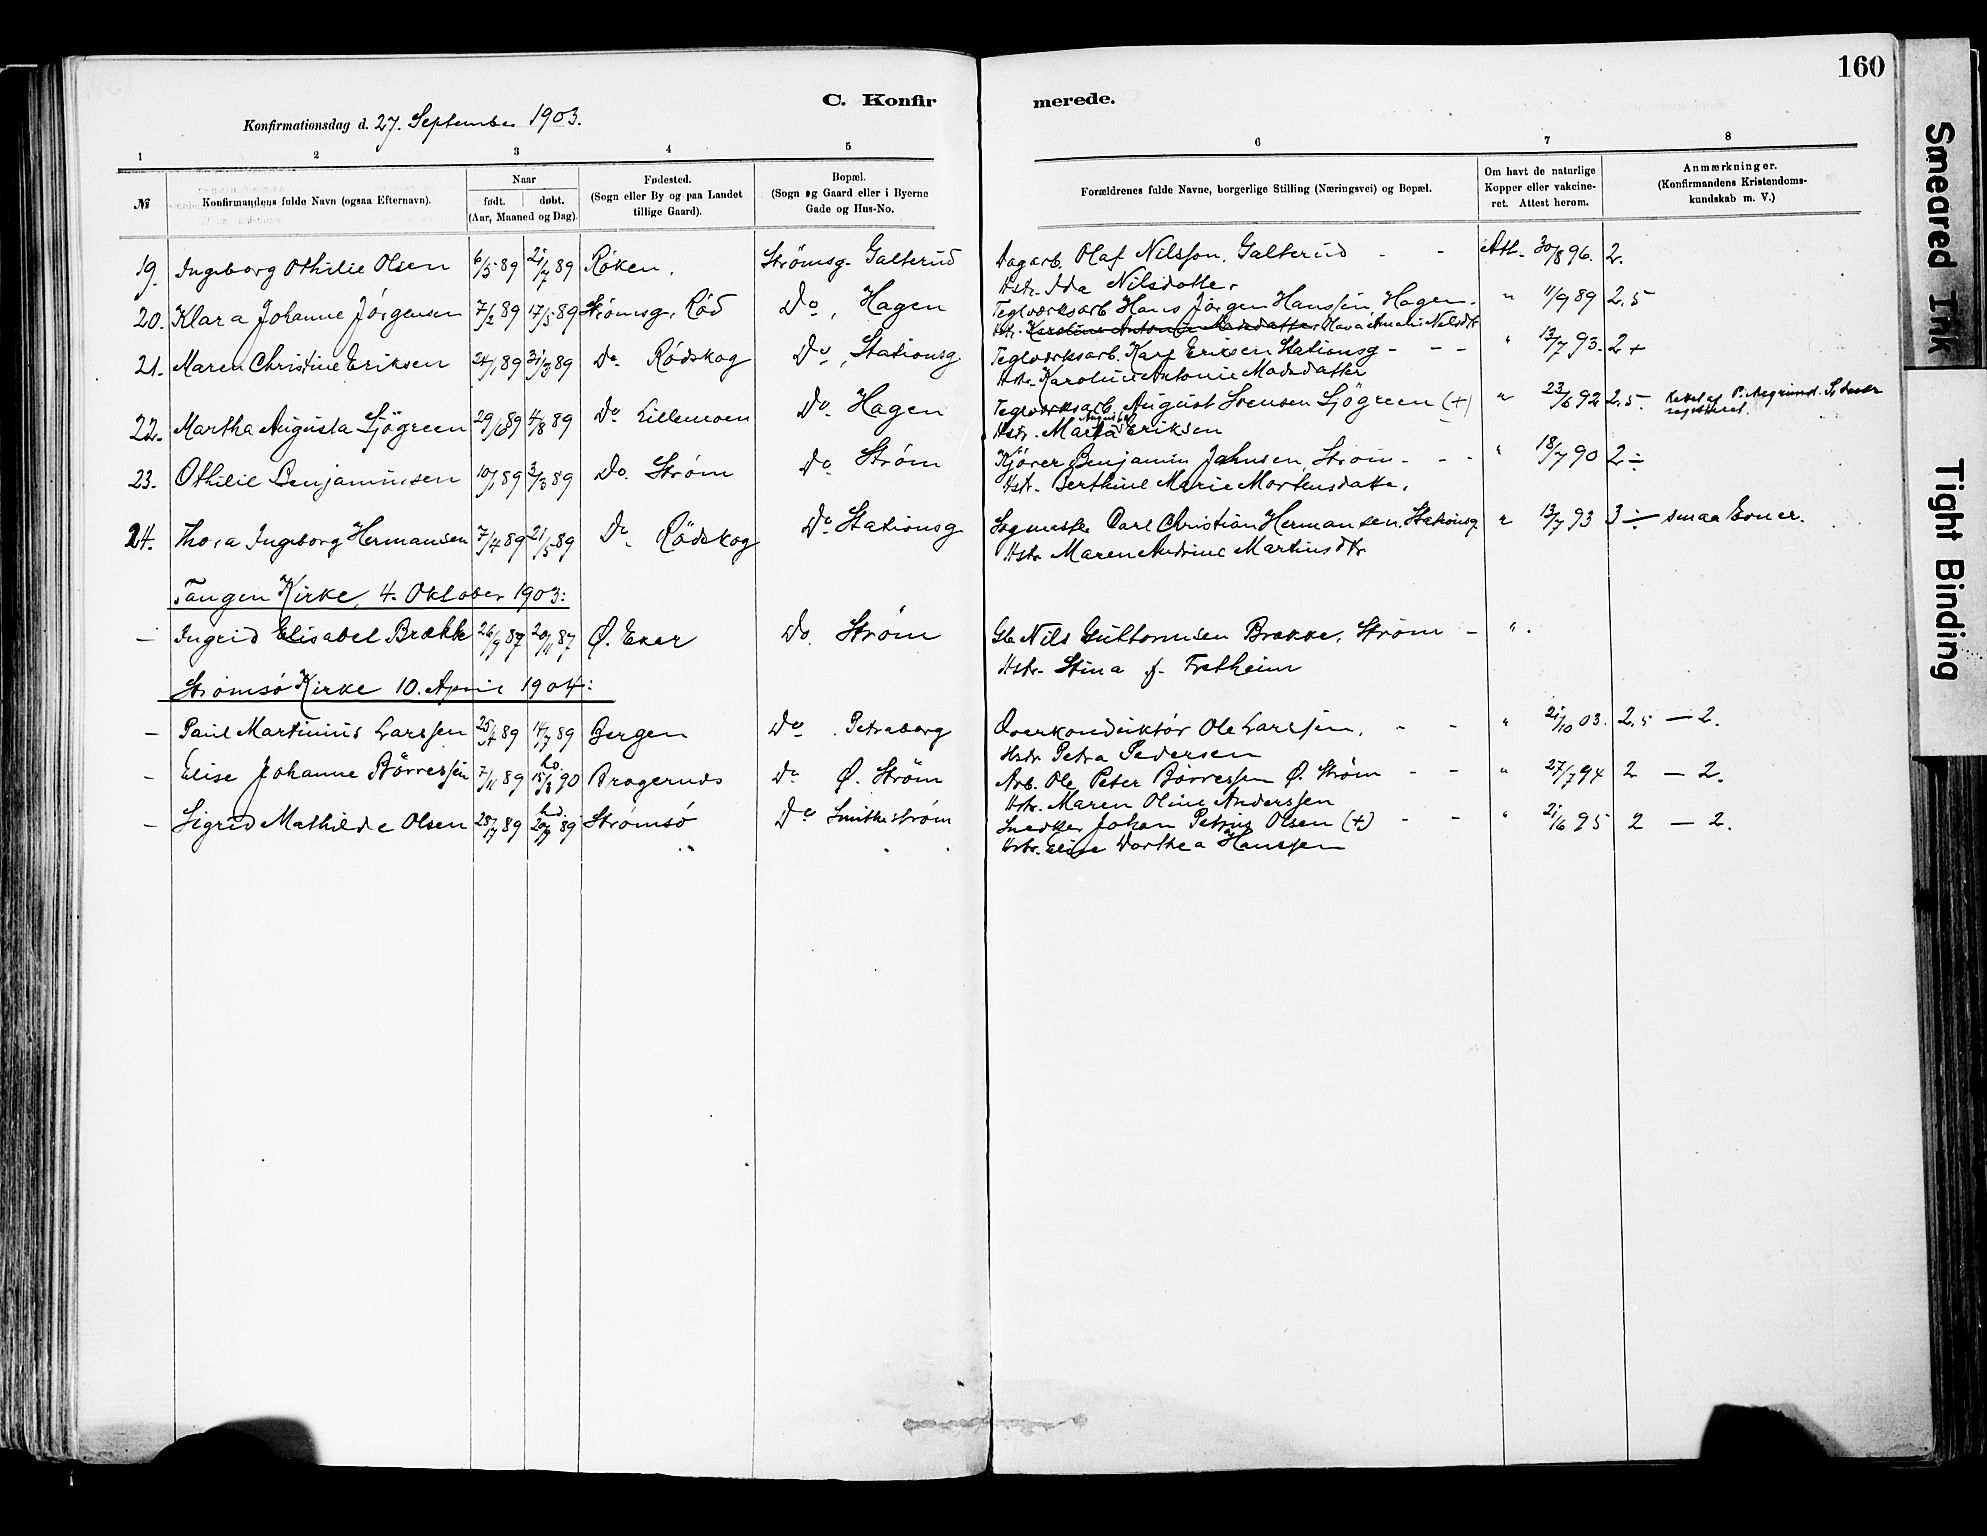 160
C. Konfirmerede.
Konfirmationsdag d. 27. September 1903.
1 2 3 4 5 6 7 8
№ Konfirmandens fulde Navn (ogsaa Efternavn). Naar født. døbt. (Aar, Maaned og Dag). Fødested. (Sogn eller By og paa Landet tillige Gaard). Bopæl. (Sogn og Gaard eller i Byerne Gade og Hus-No. Forældrenes fulde Navne, borgerlige Stilling (Næringsvei) og Bopæl. Om havt de naturlige Kopper eller vakcineret. Attest herom. Anmærkninger. (Konfirmandens Kristendomskundskab m. V.)
19. Ingeborg Othilie Olsen 6/5 89 21/7 89 Røken. Strømsg. Galterud Dagarb. Olaf Nilsson, Galterud - - Att. 30/8 96. 2.
Hstr. Ida Nilsdotter
20. Klara Johanne Jörgensen 7/2 89 17/5 89 Strömsg. Röd Do, Hagen Teglværksarb Hans Jörgen Hanssen, Hagen. " 11/9 89 2.5
Hstr. Karoline Antonie Madsdatter Olava Amalie Nilsdtr
21. Maren Christine Eriksen 24/1 89 31/3 89 Do Rödskog Do, Stationsg. Teglværksarb. Karl Eriksen Stationsg - - - " 13/7 93. 2+
Hstr. Karoline Antonie Madsdatter
22. Martha Augusta Sjögreen 29/6 89 4/8 89 Do Lillemoen Do. Hagen Teglværksarb. August Svensen Sjögreen (+) " 23/6 92 2.5.
Hstr. Maria Augusta Eriksen
23. Othilie Benjaminsen 10/1 89 3/3 89 Do. Ström Do Ström Kjører Benjamin Johnsen, Ström - - - " 18/7 90 2÷
Hstr. Berthine Marie Mortensdatter.
24. Thora Ingeborg Hermansen 7/4 89 21/5 89 Do Rödskog Do. Stationsg Sagmester Carl Christian Hermansen, Stationsg " 13/7 93 3÷ smaa Evner.
Hstr. Maren Andrine Martinsdtr
Tangen Kirke, 4. Oktober 1903:
— Ingrid Elisabet Brække 26/9 87 20/11 87 Ø. Eker Do. Ström Gb Nils Guttormsen Brække, Ström - ".
Hstr. Stina f. Fretheim
Strömsö Kirke 10. April 1904:
— Paul Martinius Larssen 25/4 89 14/7 89 Bergen Do . Petraborg Overkonduktör Ole Larssen, - - " 21/10 03. 2.5 — 2.
Hstr. Petra Pedersen
— Elise Johanne Börressen 7/11 89 15/3 90 Bragernes Do Ø. Ström Arb. Ole Peter Börressen Ø. Ström - - " 27/7 94 2 — 2.
Hstr. Maren Oline Anderssen
— Sigrid Mathilde Olsen 28/7 89 89 Strömsö Do Smitheström Snedker Johan Petrus Olsen (+) - - " 21/6 95 2 — 2.
Hstr. Elise Dorthea Hanssen
Smeared Ink
Tight Binding